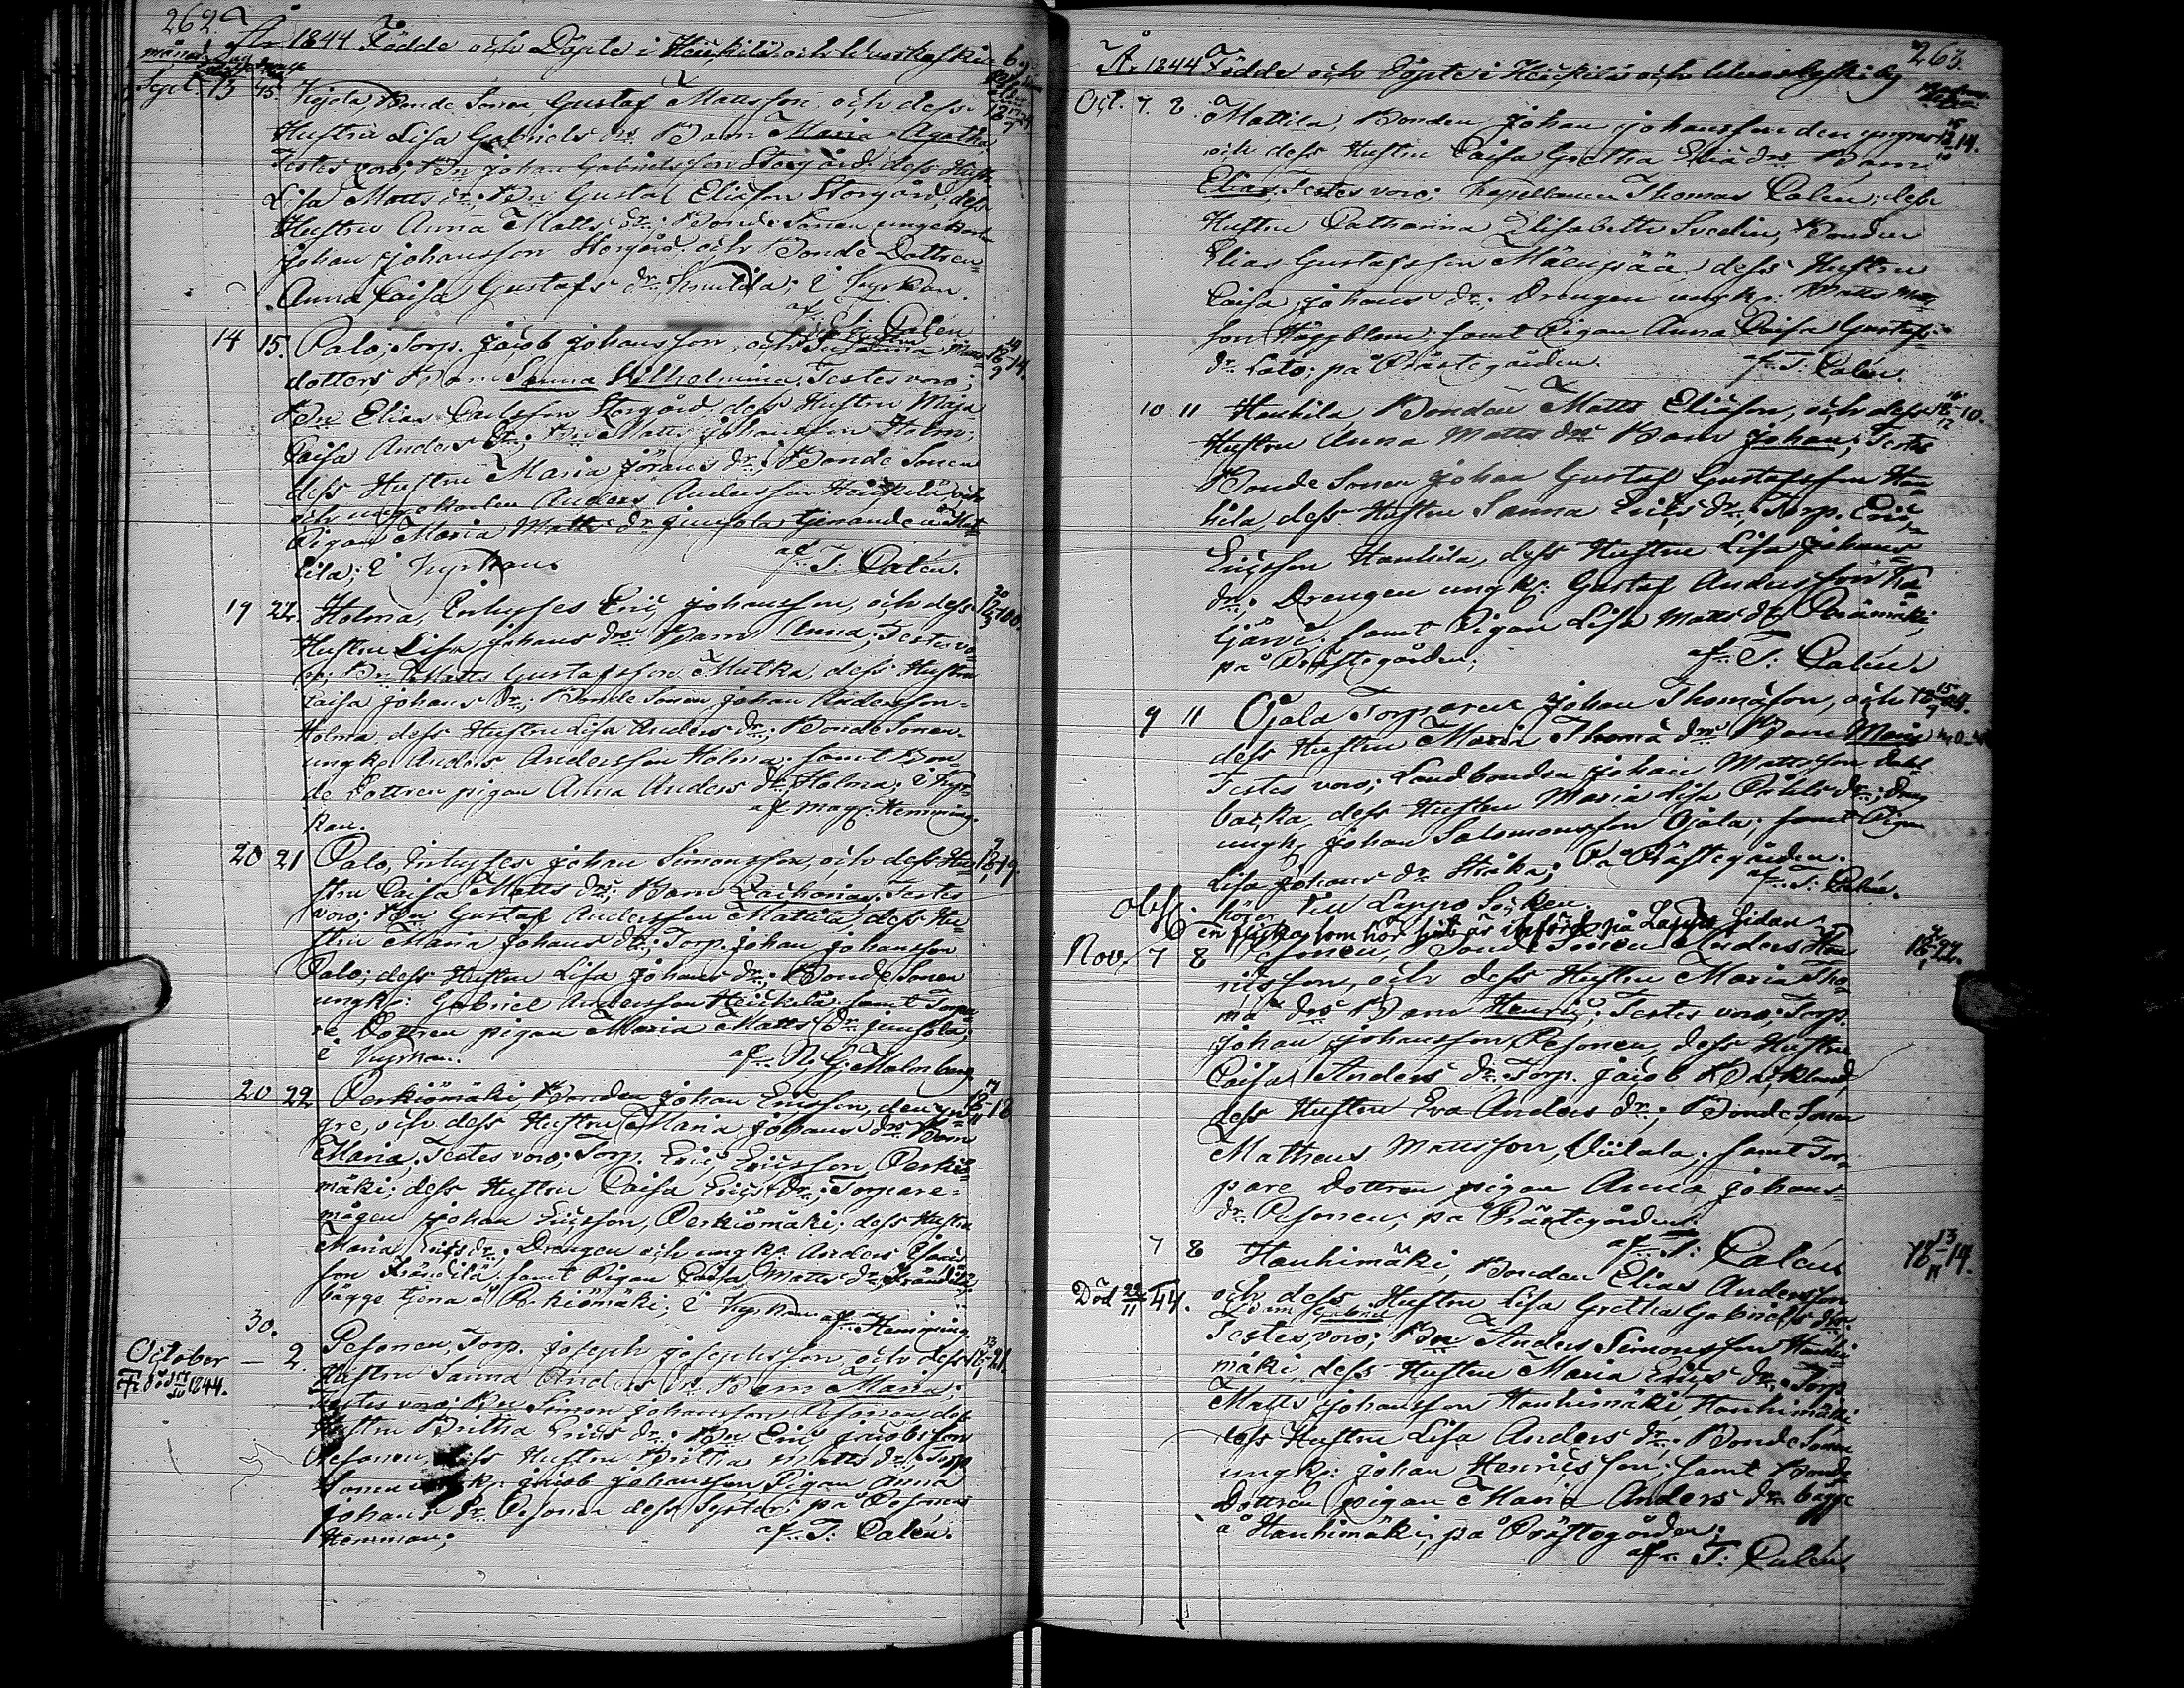 262.
År 1844 Födde och Döpte i Heickilä och Uuskyski by.
Sept. 13 15. Kojola Bonde Sonen Gustaf Mattsson, och dess
Hustru Lisa Gabriels drs Barn Maria Agatha.
Testes voro; Bn Johan Gabrielsson Storgård dess Hust.
Lisa Matts dr; Bn Gustaf Eliasson Storgård; dess
Hustru Anna Matts dr; Bonde Sonen ungekarlen
Johan Johansson Storgård och Bonde Dottren
Anna Caisa Gustafs dr; i Kyrkan.
af Calén
14 15. Palo, Torp. Jacob Johansson, och Hustru Susanna Matts
dotters Barn Sanna Wilhelmina; Testes voro;
Bn Elias Carlsson Storgård, dess Hustru Maja
Caisa Anders dr; Bn Matts Johansson Holm;
dess Hustru Maria Jörans dr; Bonde Sonen
och ungekarlen Anders Andersson Heickilä och
Pigan Maria Matts dr Junsola tjenande å
lila; i Kyrkan. af T: Calén.
19 22. Holma, Inhyses Eric Johansson, och dess
Hustru Lisa Johans drs Barn Anna; Testes vo-
ro; Bn Matts Gustafsson Mutka, dess Hustru
Caisa Johans dr; Bonde Sonen Johan Andersson
Holma dess Hustru Lisa Anders dr; Bonde Sonen
ungk. Anders Andersson Holma; samt Bon-
de Dottren pigan Anna Anders dr Holma; i Kyr-
kan. af Mag. Hemming.
20 21 Palo, Inhyses Johan Simonsson, och dess Hu-
stru Caisa Matts drs; Barn Zachorias; Testes
voro; Bn Gustaf Andersson Mattila dess Hu-
stru Maria Johans dr; Torp. Johan Johansson
Palo; dess Hustru Lisa Johans dr; Bonde Sonen
ungk: Gabriel Andersson Heickilä samt Torpa-
re Dottren pigan Maria Matts dr Junsola;
i Kyrkan. af N. G. Malmberg
20 22 Perkiömäki, Bonden Johan Ericsson, den yn-
gre, och dess Hustru Maria Johans drs Barn
Maria; Testes voro; Torp. Eric Ericsson, Perkiö-
mäki; dess Hustru Caisa Erics dr; Torpare-
mågen Johan Ericsson, Perkiömäki; dess Hustru
Maria Erics dr; Drengen och ungk: Anders
son Frändilä; samt Pigan Caisa Matts dr Frändilä
bägge tjena å Pkiömäki; i Kyrkan af Hemming
30.
October — 2. Pesonen, Torp. Joseph Josephsson och dess
död 1844. Hustru Sanna Anders drs Barn Maria;
Testes voro; Bn Simon Johansson Pesonen, dess
Hustru Britha Erics dr; Bn Eric Jacobsson
Pesonen, dess Hustru Britha Matts dr; Torp
Sonen k: Jacob Johansson Pigan Anna
Johans dr Pesonen dess Syster; på Pesonens
Hemman; af T: Calén.
263.
År 1844 Födde och Döpte i Heickilä och Uuskyski by
Oct. 7. 8. Mattila, Bonden Johan Johansson den yngre
och dess Hustru Caisa Gretha Eliæ drs Barn
Elias; Testes voro; Kapellanen Thomas Calén; dess
Hustru Catharina Elisabeth Svedin, Bonden
Elias Gustafsson Mäenpää dess Hustru
Caisa Johans dr; Drengen ungk: Matts Matts-
son Häggblom samt Pigan Anna Caisa Gustafs
dr Lato; på Prästegården. af T. Calén.
10 11 Haukila Bonden Matts Eliæson, och dess
Hustru Anna Matts drs Barn Johan; Testes
Bonde Sonen Johan Gustaf Gustafsson Hau-
kila, dess Hustru Sanna Erics dr; Torp. Eric
Ericsson Haukila, dess Hustru Lisa Johans
dr; Drengen ungk: Gustaf Andersson Ka-
tjärvi; samt Pigan Lisa Matts dr
på Prästegården; af T: Calén.
9 11 Ojala Torparen Johan Thomæson, och
dess Hustru Maria Thomæ drs Barn Maria
Testes voro; Landbonden Johan Mattsson
backa, dess Hustru Maria Lisa dr; Dreng
ungk, Johan Salomonsson Ojala; samt Pigan
Lisa Johans dr; På Prästegården.
af T: Calén.
obs. hörer till Lappo Socken.
en flicka som hör hit är införd på Sidan
Nov. 7 8 Pesonen, Bonde Sonen Anders Hen-
ricsson, och dess Hustru Maria Tho-
mæ drs Barn Henric; Testes voro; Torp.
Johan Johansson Pesonen, dess Hustru
Caisa Anders dr; Torp. Jacob Backlund,
dess Hustru Eva Anders dr; Bonde Sonen
Matheus Mattsson, Viitala; samt Tor-
pare Dottren pigan Anna Johans
dr Pesonen; på Prästegården.
af T: Calén.
7 8 Hanhimäki, Bonden Elias Andersson
Död 22/11 44. och dess Hustru Lisa Gretha Gabriels drs
Barn
Testes voro; Bn Anders Simonsson Hanhi-
mäki, dess Hustru Maria Erics dr; Torp
Matts Johansson Hanhimäki, Hanhimäki
dess Hustru Lisa Anders dr; Bonde Sonen
ungk: Johan Henricsson; samt Bonde
Dottren pigan Maria Anders dr; bägge
å Hanhimäki; på Prästegården;
af T: Calén.